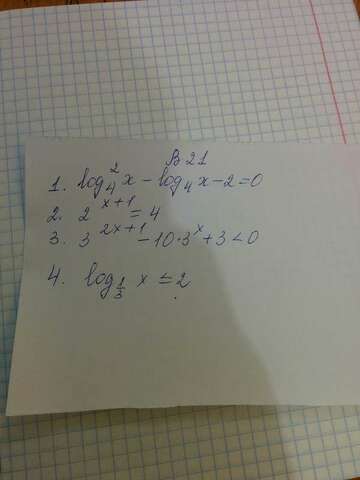 В 21
1. log₄²x - log₄x - 2 = 0
2. 2^(x+1) = 4
3. 3^(2x+1) - 10·3^x + 3 < 0
4. log_(1/3) x ≤ 2